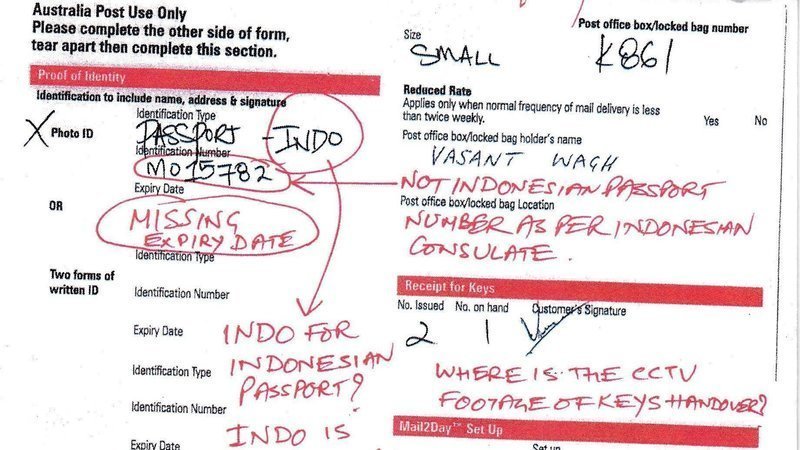 Australia Post Use Only
Please complete the other side of form,
tear apart then complete this section.
Proof of Identity
Identification to include name, address & signature
Identification Type
X Photo ID
PASSPORT - INDO
Identification Number
M015782
Expiry Date
OR
MISSING
EXPIRY DATE
Identification Type
Two forms of
written ID
Identification Number
Expiry Date
INDO FOR
INDONESIAN
Identification Type
PASSPORT?
Identification Number
INDO IS
Expiry Date
Post office box/locked bag number
Size
SMALL
K861
Reduced Rate
Applies only when normal frequency of mail delivery is less
than twice weekly.
Yes No
Post office box/locked bag holder's name
VASANT WAGH
NOT INDONESIAN PASSPORT
Post office box/locked bag Location
NUMBER AS PER INDONESIAN
CONSULATE.
Receipt for Keys
No. Issued No. on hand Customer's Signature
2 1
WHERE IS THE CCTV
FOOTAGE OF KEYS HANDOVER?
Mail2Day™ Set Up
Set up